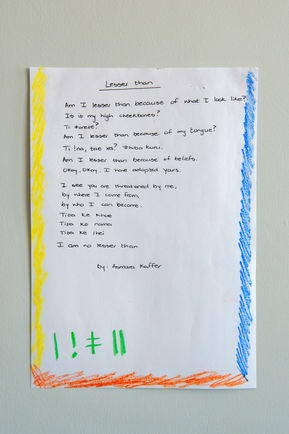 Lesser than
Am I lesser than because of what I look like?
Is it my high cheekbones?
Ti ǂurete?
Am I lesser than because of my tongue?
Ti !na, tae xa? ǂhiba kuru.
Am I lesser than because of beliefs.
Okay, Okay. I have adopted yours.
I see you are threatened by me,
by where I come from,
by who I can become.
Tita ke khoe
Tita ke nama
Tita ke
I am no lesser than
by: Asmara Kaffer
| ! ǂ ǁ